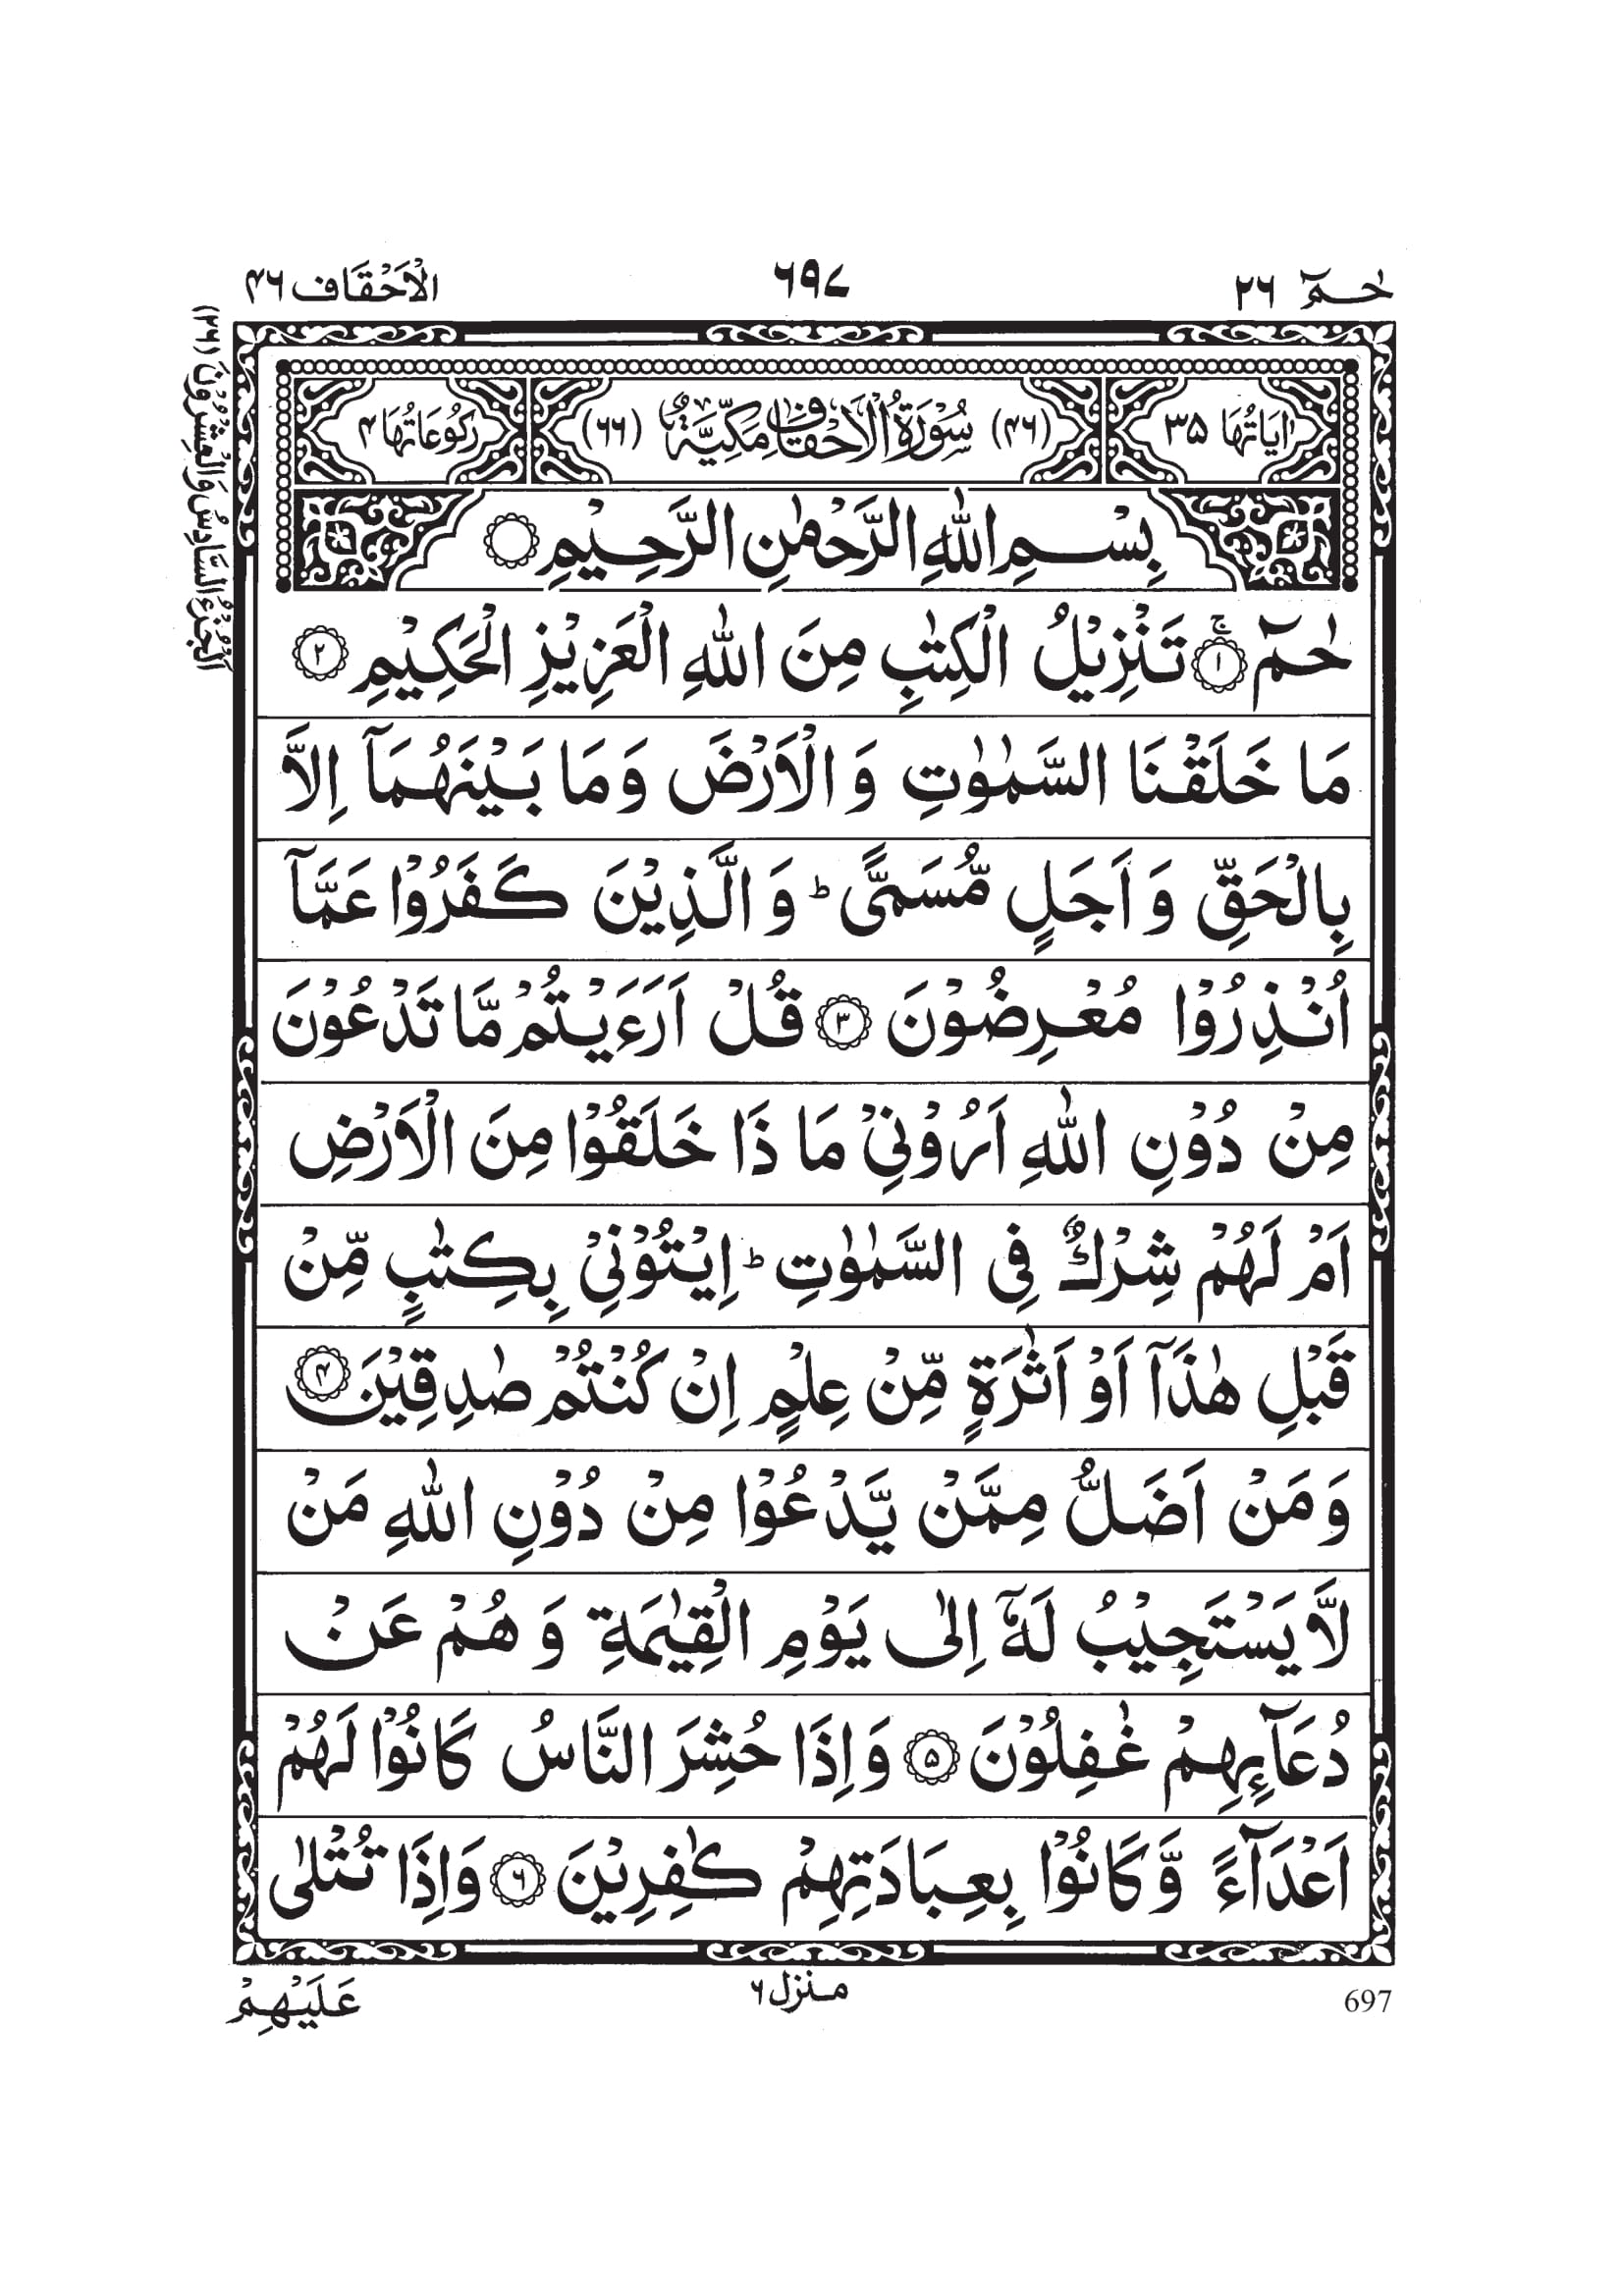 حٰـمٓ ٢٦
٦٩٧
الْاَحْقَاف ٤٦
اَلْجُزْءُ السَّادِسُ وَالْعِشْرُوْنَ (٢٦)
اٰيَاتُهَا ٣٥
(٤٦) سُوْرَةُ الْاَحْقَافِ مَكِّيَّةٌ (٦٦)
رُكُوْعَاتُهَا ٤
بِسْـمِ اللّٰهِ الرَّحْمٰنِ الرَّحِيْمِ
حٰـمٓ ۚ ﴿١﴾ تَنْزِيْلُ الْكِتٰبِ مِنَ اللّٰهِ الْعَزِيْزِ الْحَكِيْمِ ﴿٢﴾
مَا خَلَقْنَا السَّمٰوٰتِ وَ الْاَرْضَ وَ مَا بَيْنَهُمَاۤ اِلَّا
بِالْحَقِّ وَ اَجَلٍ مُّسَمًّى ؕ وَ الَّذِيْنَ كَفَرُوْا عَمَّاۤ
اُنْذِرُوْا مُعْرِضُوْنَ ﴿٣﴾ قُلْ اَرَءَيْتُمْ مَّا تَدْعُوْنَ
مِنْ دُوْنِ اللّٰهِ اَرُوْنِيْ مَا ذَا خَلَقُوْا مِنَ الْاَرْضِ
اَمْ لَهُمْ شِرْكٌ فِي السَّمٰوٰتِ ؕ اِيْتُوْنِيْ بِكِتٰبٍ مِّنْ
قَبْلِ هٰذَاۤ اَوْ اَثٰرَةٍ مِّنْ عِلْمٍ اِنْ كُنْتُمْ صٰدِقِيْنَ ﴿٤﴾
وَ مَنْ اَضَلُّ مِمَّنْ يَّدْعُوْا مِنْ دُوْنِ اللّٰهِ مَنْ
لَّا يَسْتَجِيْبُ لَهٗۤ اِلٰى يَوْمِ الْقِيٰمَةِ وَ هُمْ عَنْ
دُعَآىِٕهِمْ غٰفِلُوْنَ ﴿٥﴾ وَ اِذَا حُشِرَ النَّاسُ كَانُوْا لَهُمْ
اَعْدَآءً وَّ كَانُوْا بِعِبَادَتِهِمْ كٰفِرِيْنَ ﴿٦﴾ وَ اِذَا تُتْلٰى
عَلَيْهِمْ
مـنزل ٦
697